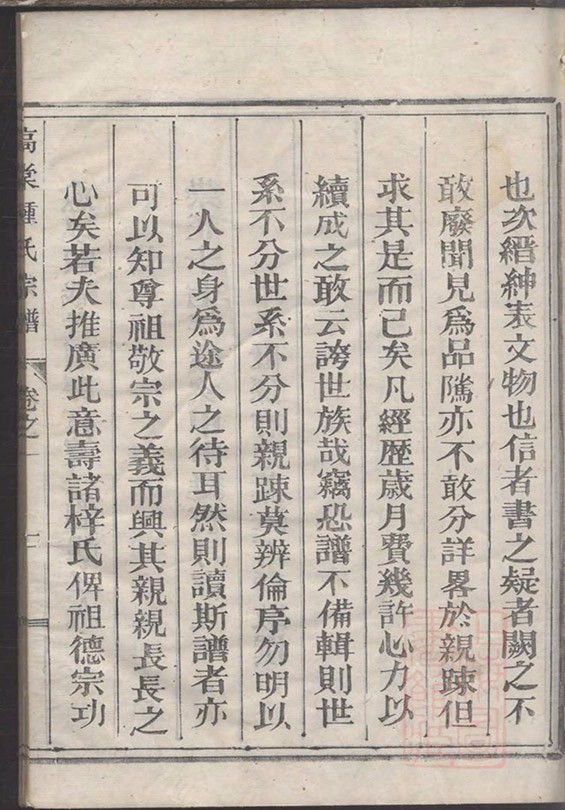 也次縉紳表文物也信者書之疑者闕之不
敢廢聞見爲品隲亦不敢分詳畧於親踈但
求其是而已矣凡經歴歲月費幾許心力以
續成之敢云誇世族哉竊恐譜不備輯則世
系不分世系不分則親踈莫辨倫序勿明以
一人之身爲途人之待耳然則讀斯譜者亦
可以知尊祖敬宗之義而興其親親長長之
心矣若夫推廣此意壽諸梓氏俾祖德宗功
高棠鍾氏宗譜 卷之一